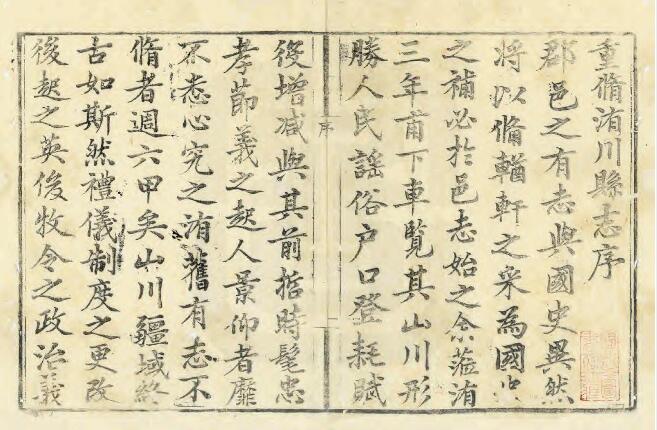 重脩洧川縣志序
郡邑之有志與國史異然
將以脩輶軒之采為國史
之補必於邑志始之余蒞洧
三年甫下車覽其山川形
勝人民謠俗户口登耗賦
序
役增減與其前哲時髦忠
孝節義之起人景仰者靡
不悉心究之洧舊有志不
脩者週六甲矣山川疆域終
古如斯然禮儀制度之更改
後起之英俊牧令之政治義